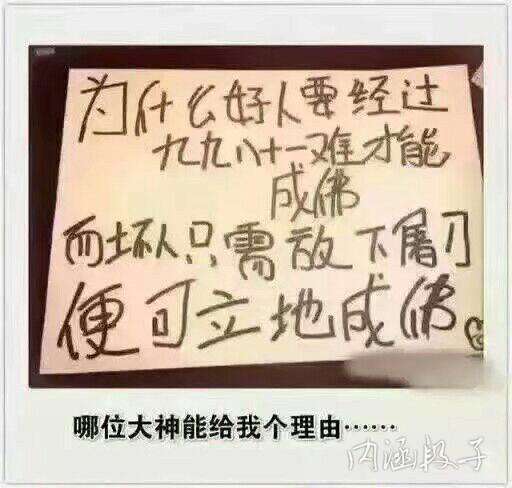 为什么好人要经过
九九八十一难才能
成佛
而坏人只需放下屠刀
便可立地成佛。
哪位大神能给我个理由……
内涵段子